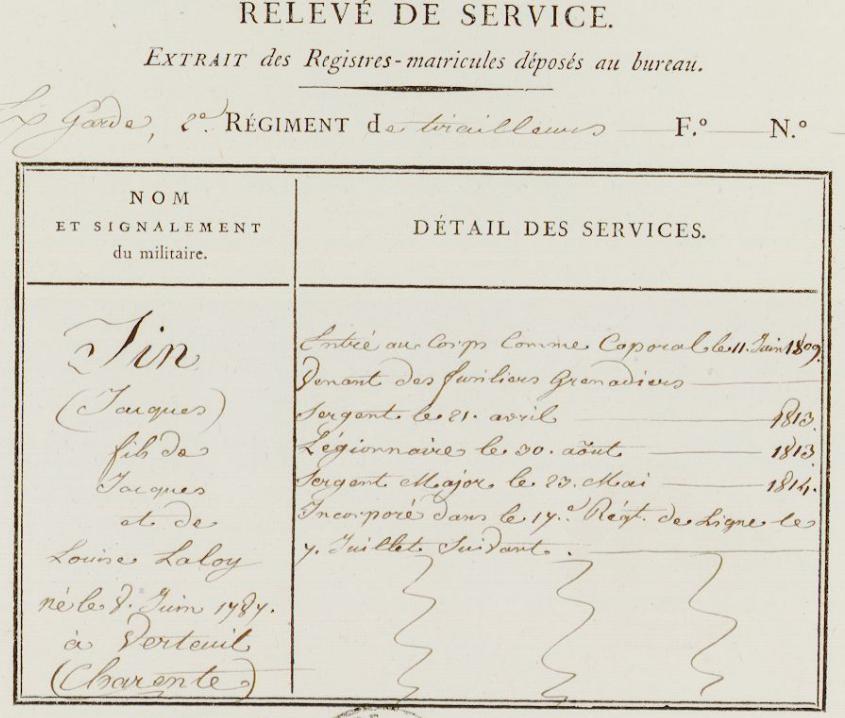 RELEVÉ DE SERVICE.
EXTRAIT des Registres-matricules déposés au bureau.
Garde, 2.e RÉGIMENT de tirailleurs F.o N.o
NOM
ET SIGNALEMENT
du militaire.
DÉTAIL DES SERVICES.
(Jacques)
fils de
Jacques
et de
Louise Laloy
né le 8. Juin 1787.
à Verteuil
(Charente)
Entré au Corps Comme Caporal le 11. Juin 1809.
Venant des fusiliers Grenadiers
Sergent le 21. avril 1813.
Légionnaire le 30. août 1813.
Sergent Major le 23. Mai 1814.
Incorporé dans le 17.e Régt. de Ligne le
7. Juillet Suivant.